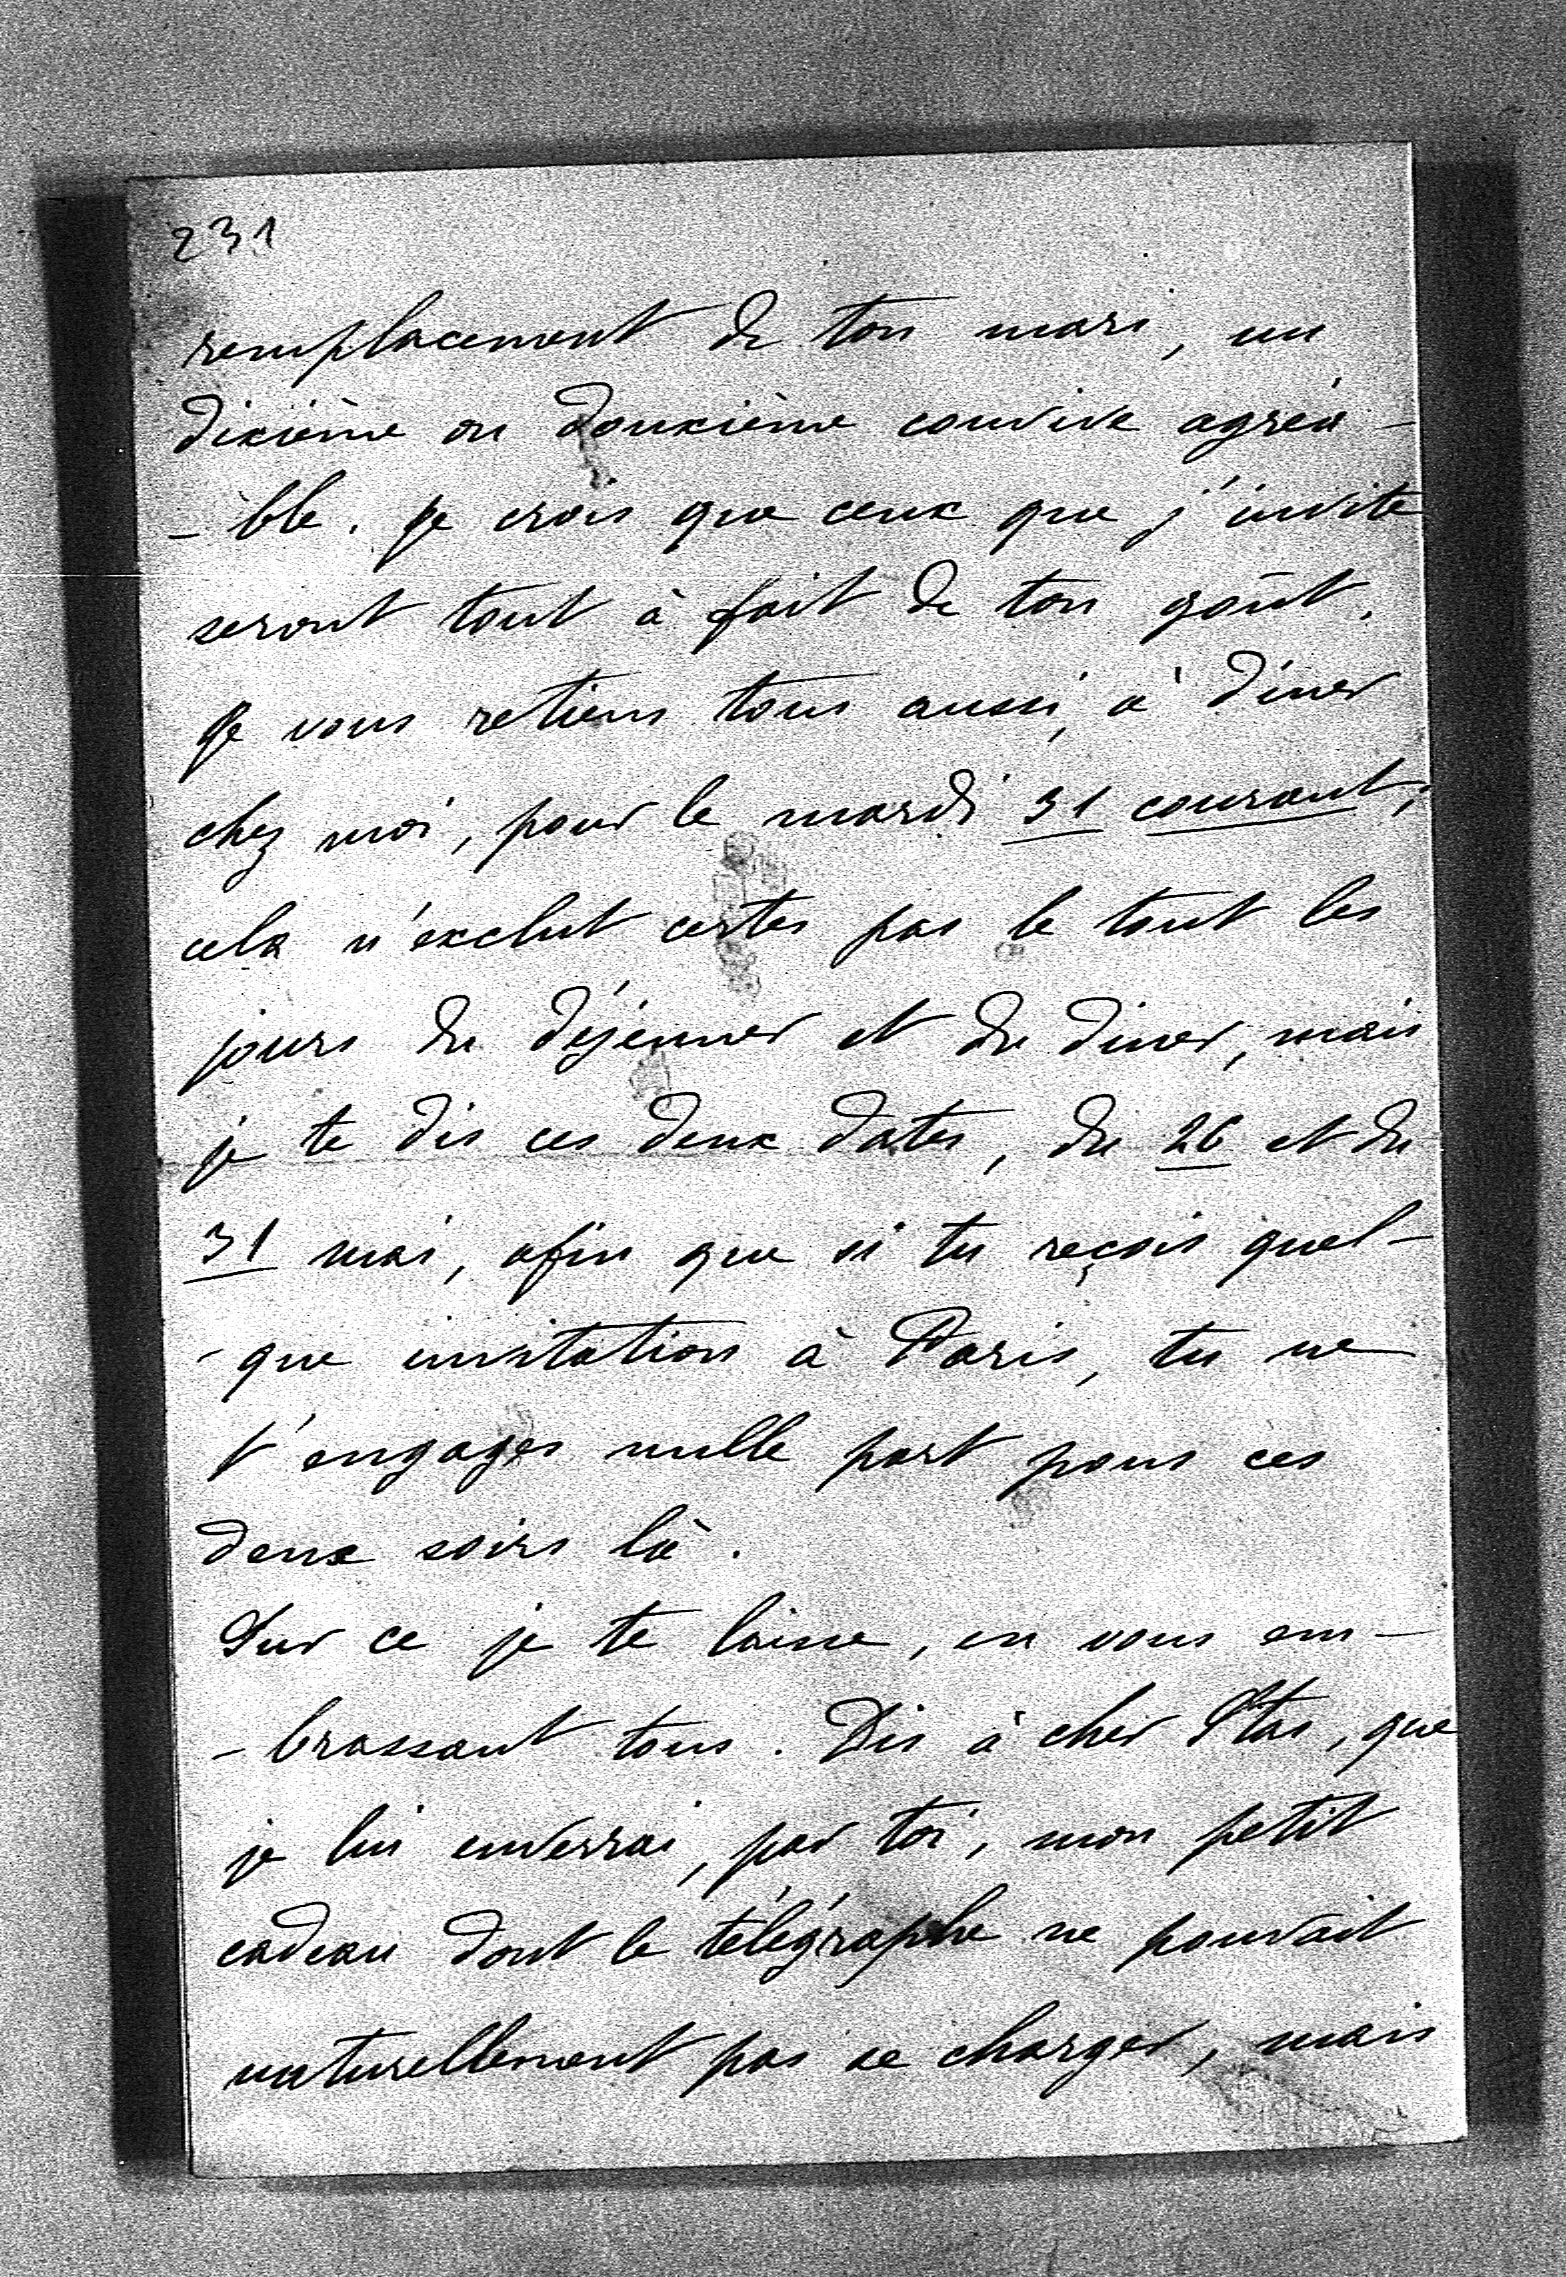 231
remplacement de ton mari, un
dixième ou douxième convive agréa-
-ble. Je crois que ceux que j'invite
seront tout à fait de ton goût.
Je vous retiens tous aussi, à dîner
chez moi, pour le mardi 31 courant;
cela n'exclut certes pas le tout les
jours du déjeuner et du diner, mais
je te dis ces deux dates, du 26 et du
31 mai, afin que si tu reçois quel-
-que invitation à Paris, tu ne
t'engages nulle part pour ces
deux soirs là.
Sur ce je te laisse, en vous em-
-brassant tous. Dis à cher Stas, que
je lui enverrai, par toi, mon petit
cadeau dont le télégraphe ne pouvait
naturellement pas se charger, mais